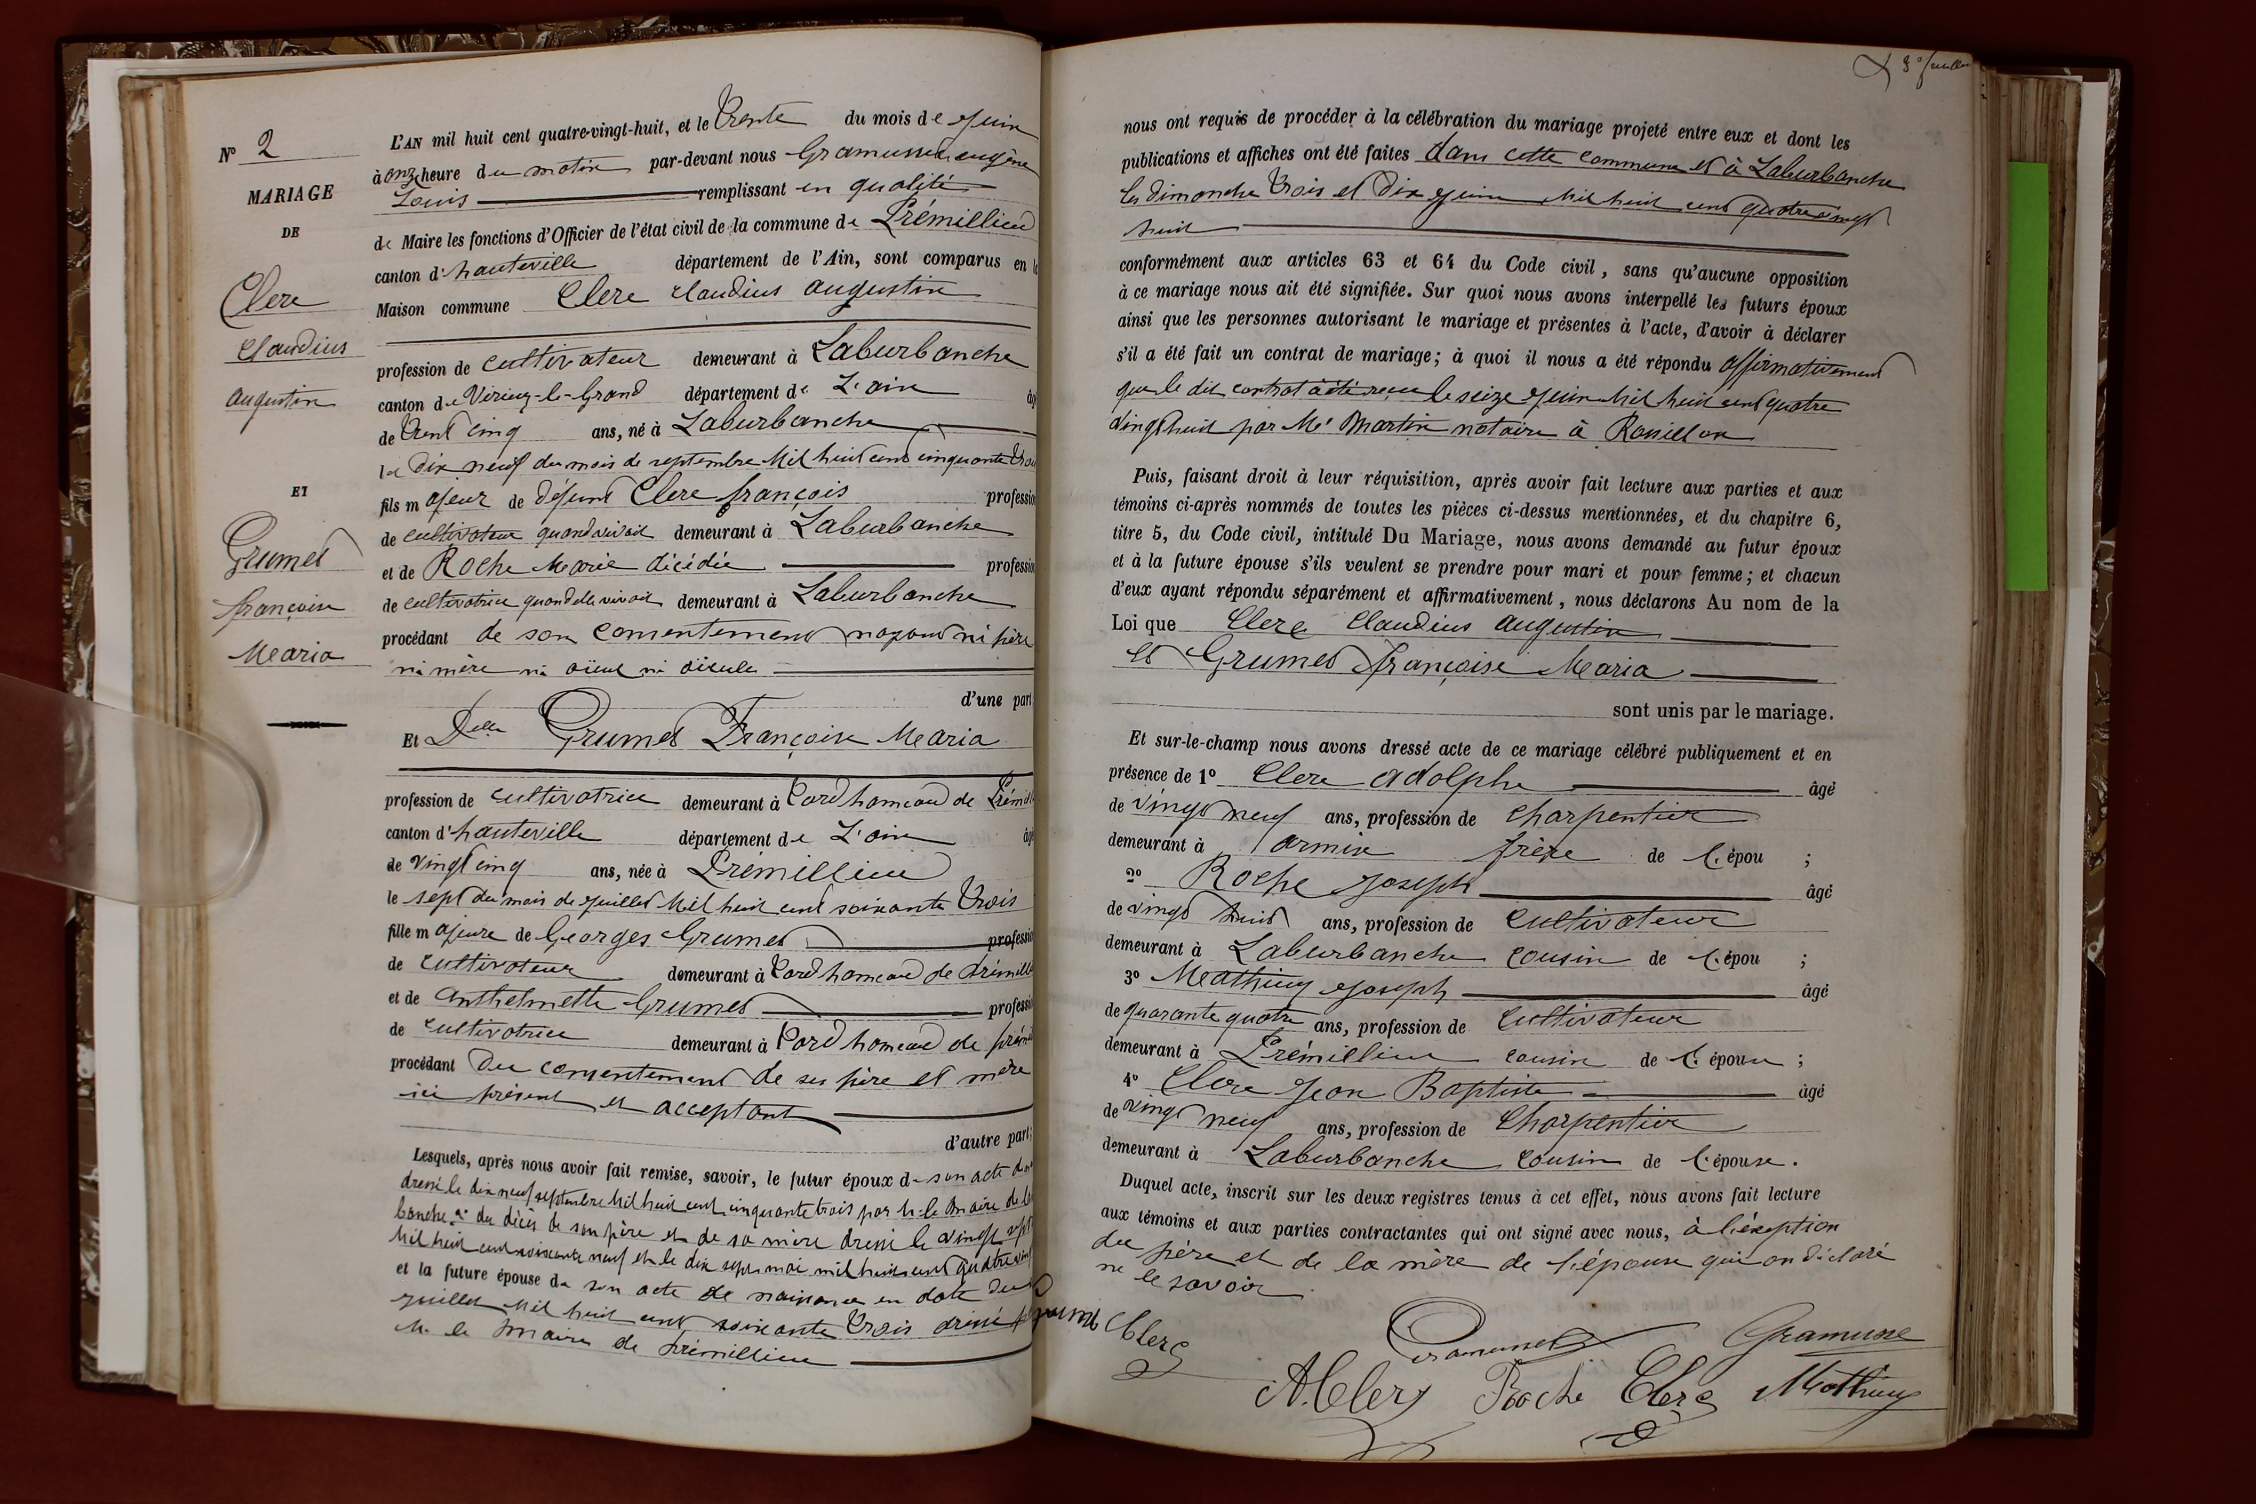 N° 2
MARIAGE
DE
Clerc
Claudius
augustin
ET
Grumet
françoise
Maria
L'AN mil huit cent quatre-vingt-huit, et le Trente du mois de Juin
à onze heure du matin par-devant nous Gramusset eugène
Louis remplissant en qualité
de Maire les fonctions d'Officier de l'état civil de la commune de Prémillieu
canton d'hauteville département de l'Ain, sont comparus en la
Maison commune Clerc claudius augustin
profession de cultivateur demeurant à Laburbanche
canton de Virieu-le-Grand département de L'ain âgé
de Trent cinq ans, né à Laburbanche
le dix neuf du mois de septembre Mil huit cent cinquante trois
fils majeur de défunt Clerc françois profession
de cultivateur quand vivait demeurant à Laburbanche
et de Roche Marie décédée profession
de cultivatrice quand elle vivait demeurant à Laburbanche
procédant de son consentement n'ayant ni père
ni mère ni aïeul ni aïeule
d'une part
Et Delle Grumet Françoise Maria
profession de cultivatrice demeurant à hameau de Prémill
canton d'hauteville département de L'ain âgé
de vingt cinq ans, née à Prémillieu
le sept du mois de juillet Mil huit cent soixante Trois
fille majeure de Georges Grumet profession
de cultivateur demeurant à hameau de Prémill
et de anthelmette Grumet profession
de cultivatrice demeurant à hameau de prémi
procédant du consentement de ses père et mère
ici présent et acceptant
d'autre part;
Lesquels, après nous avoir fait remise, savoir, le futur époux de son acte de n
dressé le dix neuf septembre Mil huit cent cinquante trois par M. le Maire de la
banche du décès de son père et de sa mère dressé le vingt sept
Mil huit cent soixante neuf et le dix sept mai mil huit cent quatre ving
et la future épouse de son acte de naissance en date du
juillet Mil huit cent soixante Trois dressé
M. le Maire de prémillieu
3e feuillet
nous ont requis de procéder à la célébration du mariage projeté entre eux et dont les
publications et affiches ont été faites dans cette commune et à Laburbanche
les dimanche Trois et Dix Juin Mil huit cent quatre vingt
huit
conformément aux articles 63 et 64 du Code civil, sans qu'aucune opposition
à ce mariage nous ait été signifiée. Sur quoi nous avons interpellé les futurs époux
ainsi que les personnes autorisant le mariage et présentes à l'acte, d'avoir à déclarer
s'il a été fait un contrat de mariage; à quoi il nous a été répondu affirmativement
que le dit contrat à été reçu le seize Juin Mil huit cent quatre
vingt huit par Me Martin notaire à Rossillon
Puis, faisant droit à leur réquisition, après avoir fait lecture aux parties et aux
témoins ci-après nommés de toutes les pièces ci-dessus mentionnées, et du chapitre 6,
titre 5, du Code civil, intitulé Du Mariage, nous avons demandé au futur époux
et à la future épouse s'ils veulent se prendre pour mari et pour femme; et chacun
d'eux ayant répondu séparément et affirmativement, nous déclarons Au nom de la
Loi que Clerc Claudius augustin
et Grumet Françoise Maria
sont unis par le mariage.
Et sur-le-champ nous avons dressé acte de ce mariage célébré publiquement et en
présence de 1° Clerc adolphe âgé
de vingt neuf ans, profession de charpentier
demeurant à armix frère de l'épou ;
2° Roche Joseph âgé
de vingt huit ans, profession de cultivateur
demeurant à Laburbanche cousin de l'épou ;
3° Mathieu Joseph âgé
de quarante quatre ans, profession de cultivateur
demeurant à Prémillieu cousin de l'épouse ;
4° Clerc Jean Baptiste âgé
de vingt neuf ans, profession de Charpentier
demeurant à Laburbanche cousin de l'épouse.
Duquel acte, inscrit sur les deux registres tenus à cet effet, nous avons fait lecture
aux témoins et aux parties contractantes qui ont signé avec nous, à l'éxeption
du père et de la mère de l'épouse qui on déclaré
ne le savoir
Grumet Clerc Gramusset Gramusse
A. Clerc Roche Clerc Mathieu